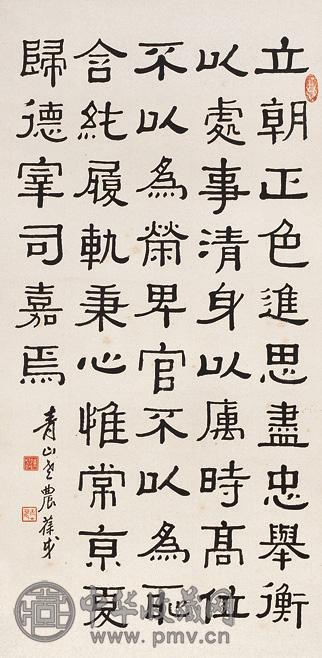 立朝正色進思盡忠舉衡
以處事清身以厲時高位
不以為榮卑官不以為恥
含純履軌秉心惟常京夏
歸德宰司嘉焉
青山老農葆戉
中华收藏网
www.pmv.cn